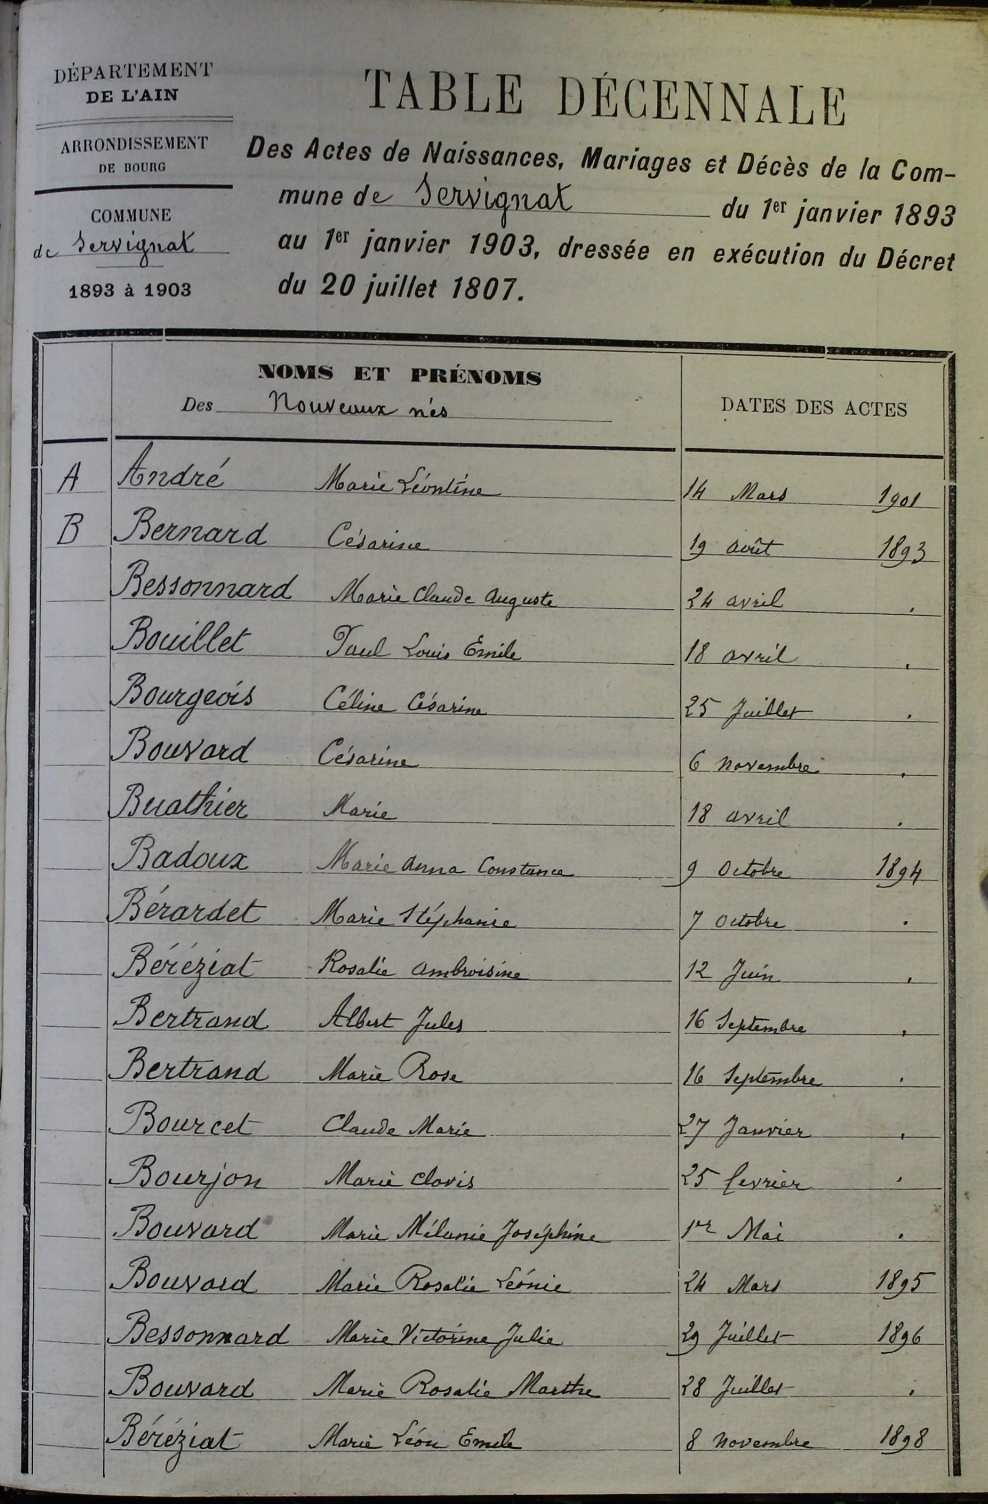 DÉPARTEMENT
DE L'AIN
ARRONDISSEMENT
DE BOURG
COMMUNE
de Servignat
1893 à 1903
TABLE DÉCENNALE
Des Actes de Naissances, Mariages et Décès de la Com-
mune de Servignat du 1er janvier 1893
au 1er janvier 1903, dressée en exécution du Décret
du 20 juillet 1807.
NOMS ET PRÉNOMS
Des Nouveaux nés
DATES DES ACTES
A André Marie Léontine 14 Mars 1901
B Bernard Césarine 19 août 1893
Bessonnard Marie Claude Auguste 24 avril .
Bouillet Paul Louis Emile 18 avril .
Bourgeois Céline Césarine 25 Juillet .
Bouvard Césarine 6 novembre .
Buathier Marie 18 avril .
Badoux Marie Anna Constance 9 Octobre 1894
Bérardet Marie Stéphanie 7 Octobre .
Béréziat Rosalie Ambroisine 12 Juin .
Bertrand Albert Jules 16 Septembre .
Bertrand Marie Rose 16 Septembre .
Bourcet Claude Marie 27 Janvier .
Bourjon Marie Clovis 25 fevrier .
Bouvard Marie Mélanie Joséphine 1er Mai .
Bouvard Marie Rosalie Léonie 24 Mars 1895
Bessonnard Marie Victorine Julie 29 Juillet 1896
Bouvard Marie Rosalie Marthe 28 Juillet .
Béréziat Marie Léon Emile 8 novembre 1898